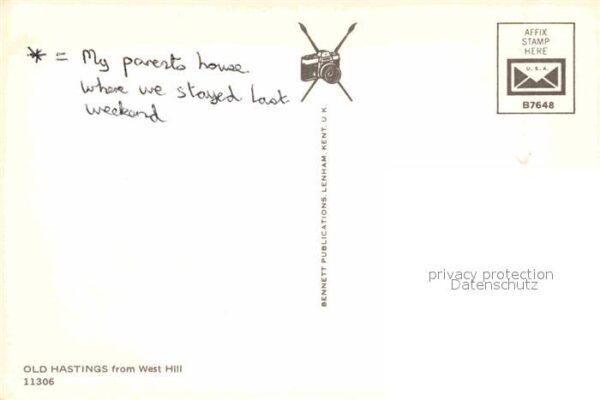 * = My parents house.
where we stayed last
weekend
AFFIX
STAMP
HERE
U.S.A.
B7648
BENNETT PUBLICATIONS, LENHAM, KENT. U.K.
privacy protection
Datenschutz
OLD HASTINGS from West Hill
11306